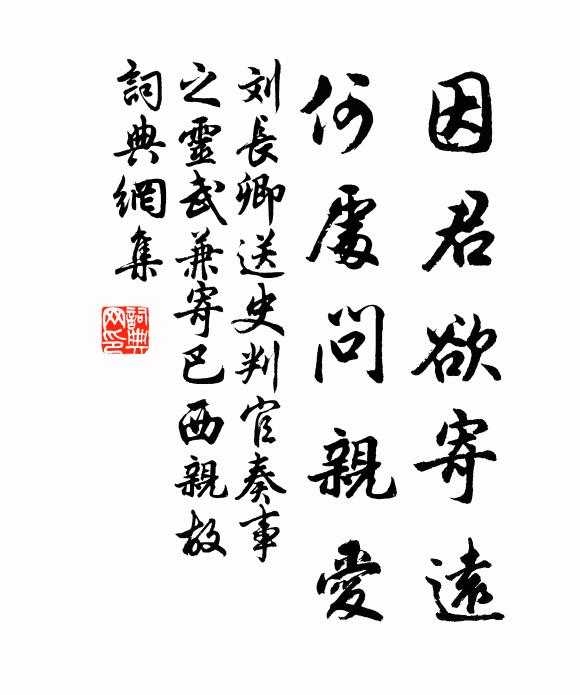 因君欲寄遠
何處問親愛
刘長卿送史判官奏事
之靈武兼寄巴西親故
詞典網集
詞典
网印